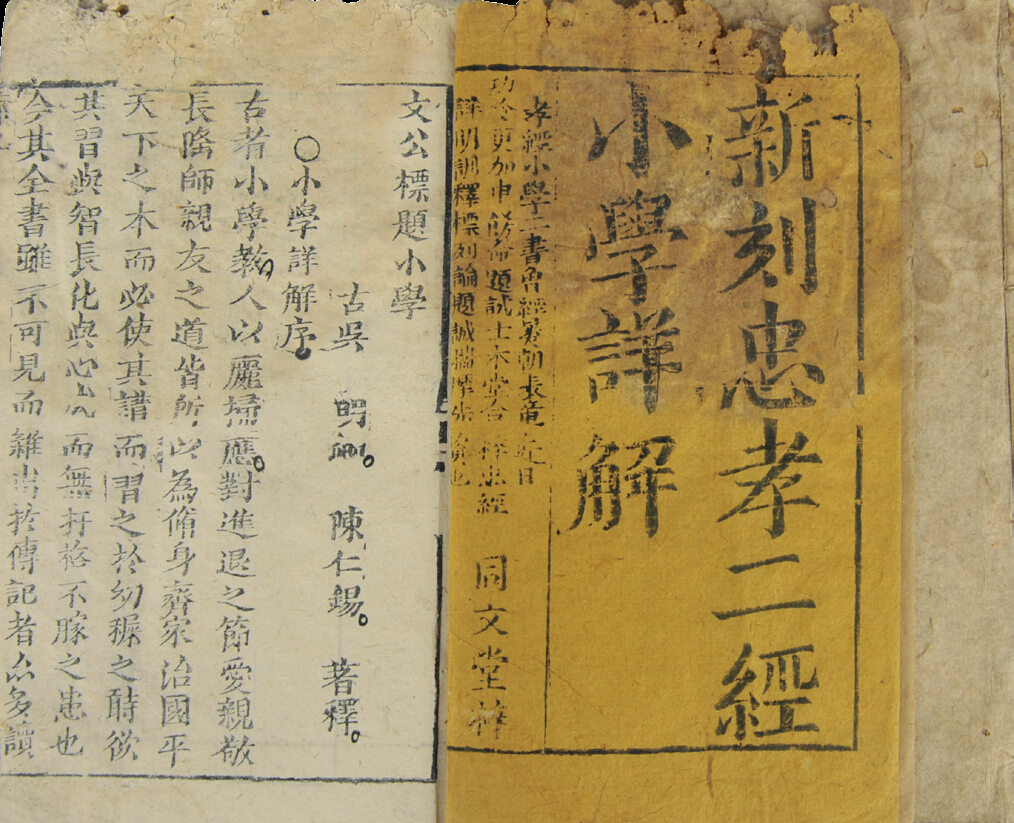 新刻忠孝二經
小學詳解
孝經小學二書曾經纂朝表章近日
功令更加申飭命題試士本堂合梓忠經
詳明訓釋標列論題誠揣摩
同文堂梓
文公標題小學
古吳 明卿 陳仁錫 著釋
○小學詳解序
古者小學教人以灑掃應對進退之節愛親敬
長隆師親友之道皆所以為脩身齊家治國平
天下之本而必使其講而習之於幼穉之時欲
其習與智長化與心成而無扞格不勝之患也
今其全書雖不可見而雜出於傳記者亦多讀